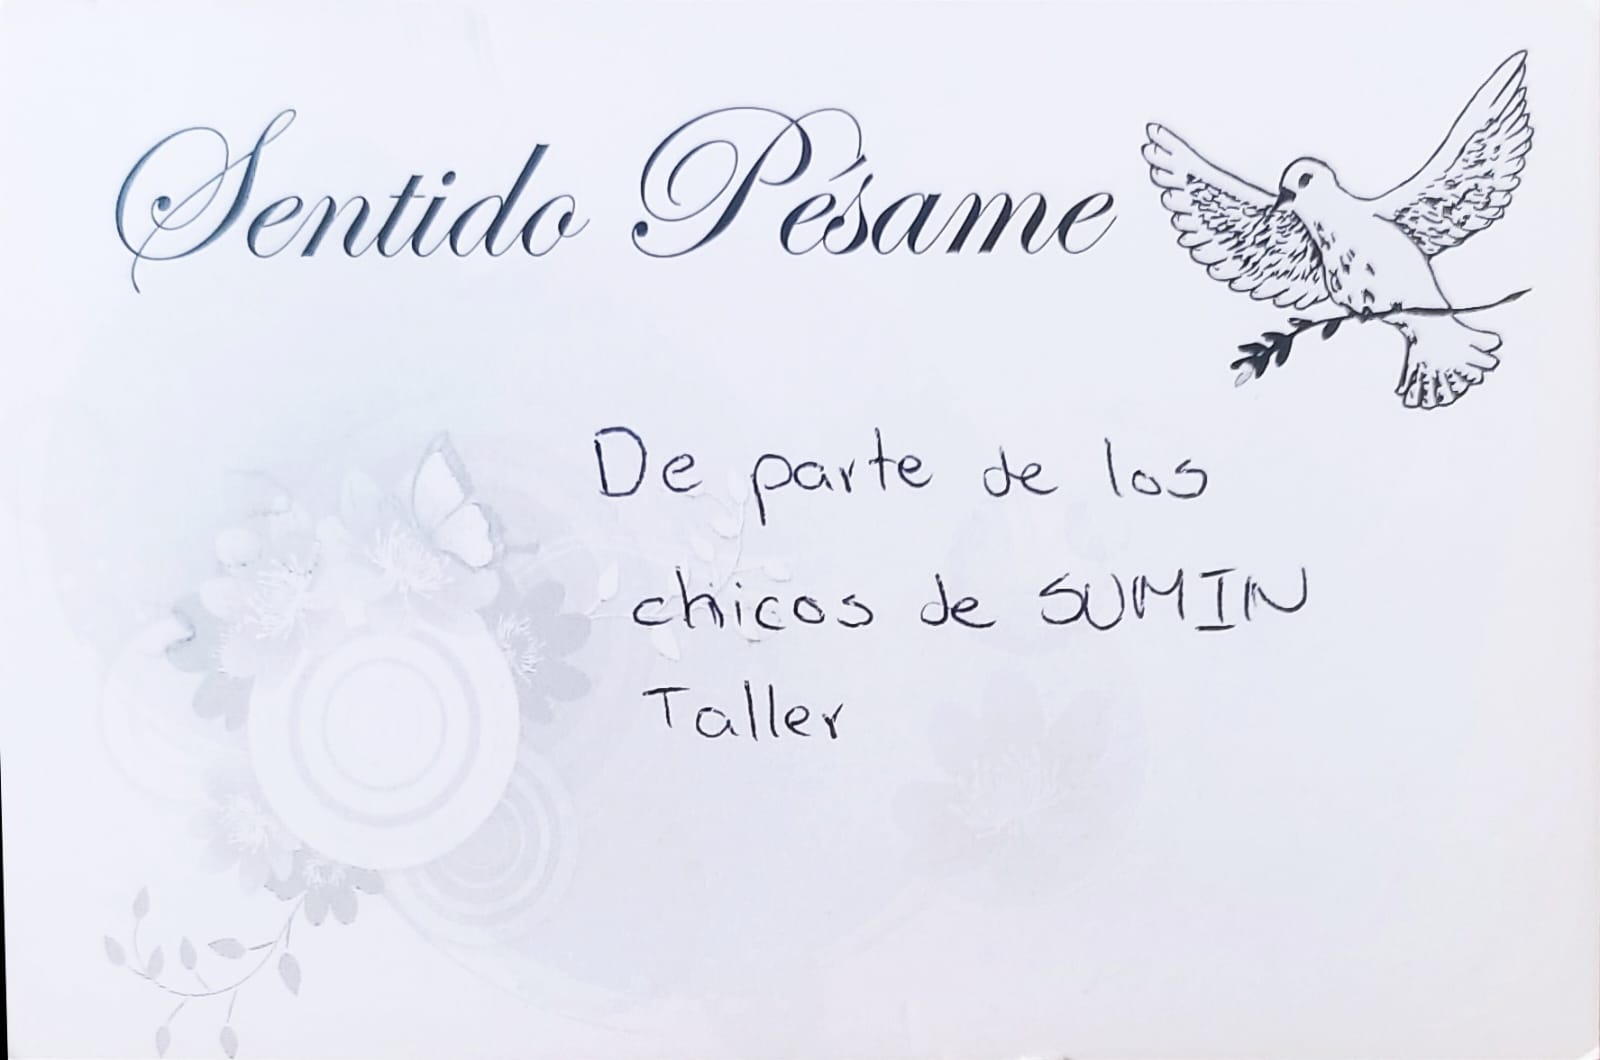 Sentido Pésame
De parte de los
chicos de SUMIN
Taller